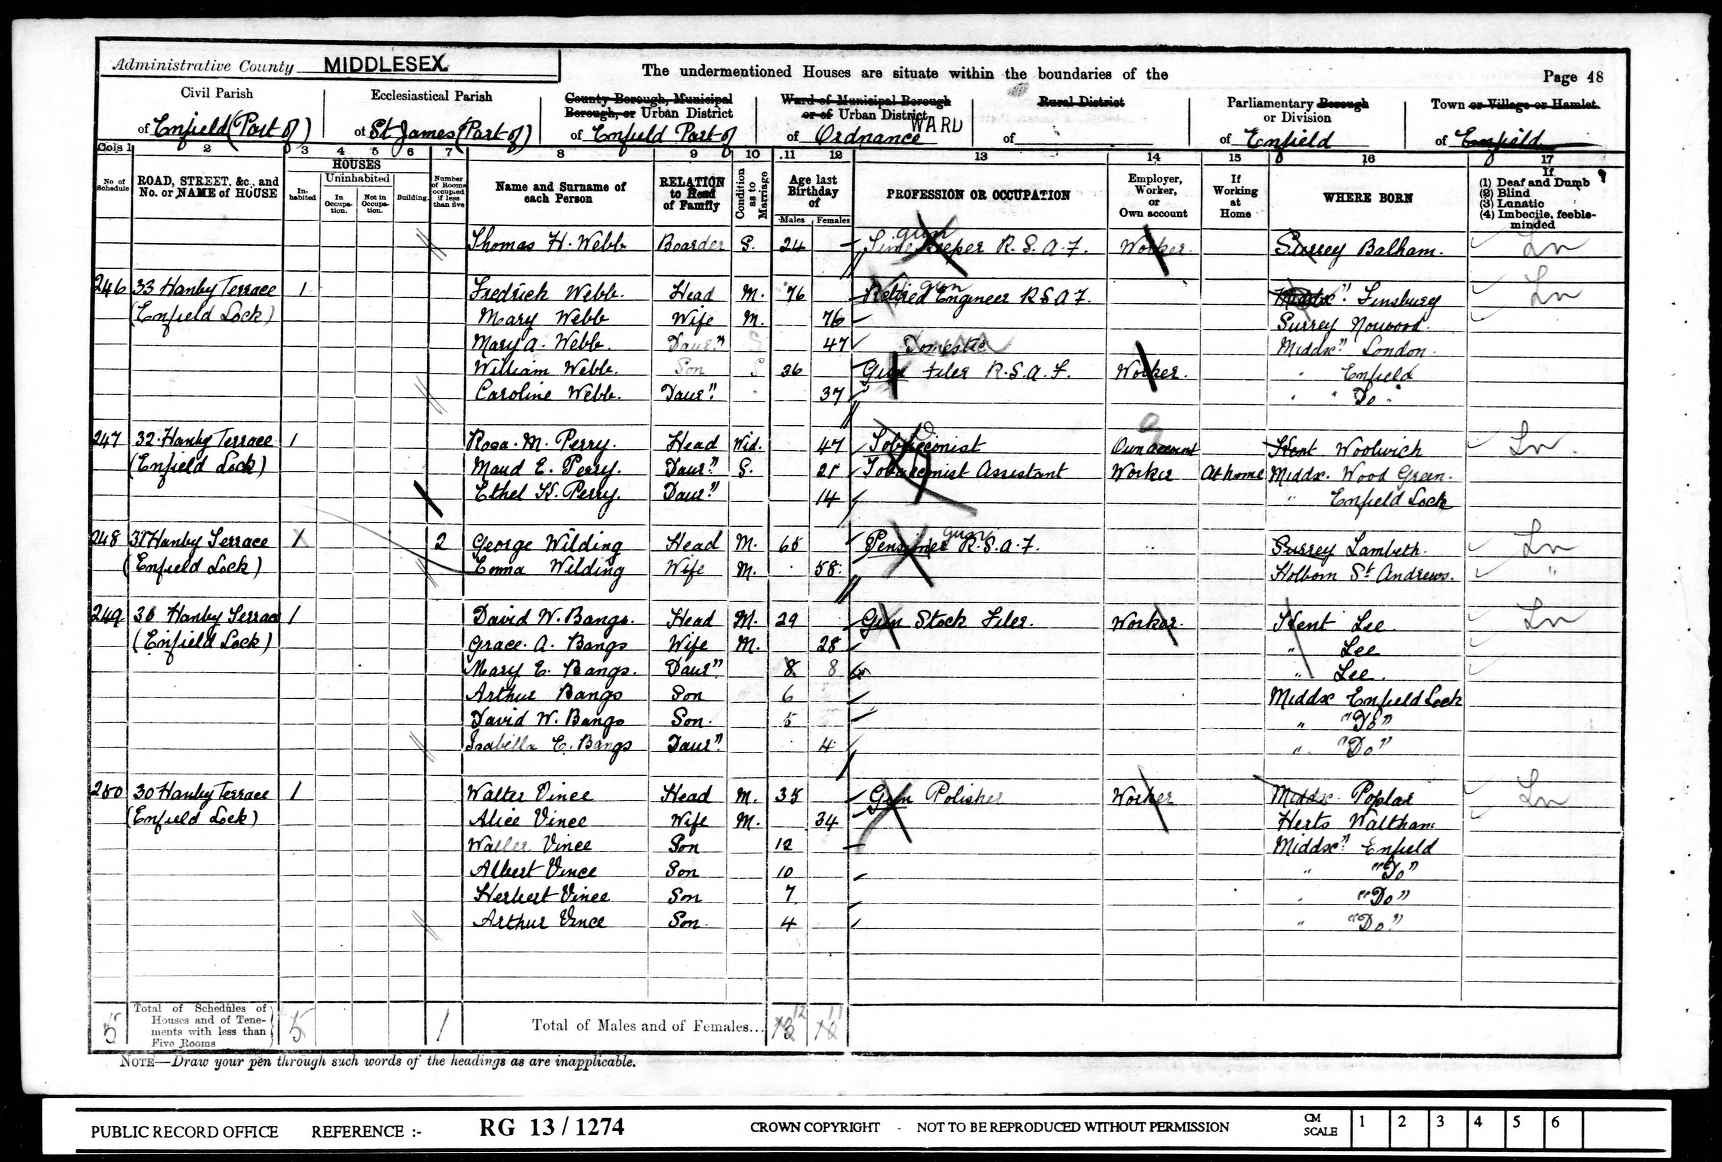 Administrative County MIDDLESEX
The undermentioned Houses are situate within the boundaries of the
Page 48
Civil Parish
of Enfield (Part of)
Ecclesiastical Parish
of St James (Part of)
County Borough, Municipal Borough, or Urban District
of Enfield Part of
Ward of Municipal Borough or of Urban District
of Ordnance WARD
Rural District
of
Parliamentary Borough or Division
of Enfield
Town or Village or Hamlet
of Enfield
Cols 1 2 3 4 5 6 7 8 9 10 11 12 13 14 15 16 17
No. of Schedule
ROAD, STREET, &c., and No. or NAME of HOUSE
HOUSES
Inhabited
Uninhabited
In Occupation.
Not in Occupation.
Building.
Number of Rooms occupied if less than five
Name and Surname of each Person
RELATION to Head of Family
Condition as to Marriage
Age last Birthday of
Males Females
PROFESSION OR OCCUPATION
Employer, Worker, or Own account
If Working at Home
WHERE BORN
If
(1) Deaf and Dumb
(2) Blind
(3) Lunatic
(4) Imbecile, feeble-minded
Thomas H. Webb Boarder S. 24 Gun R.S.A.F. Worker Surrey Balham. Ln
246 33 Hanby Terrace 1 Fredrick Webb. Head M. 76 Retired Engineer R.S.A.F. Gun Middx" Finsbury Ln
(Enfield Lock) Mary Webb Wife M. 76 Surrey Norwood.
Mary A. Webb. Daur." S 47 Domestic Middx" London.
William Webb. Son S 36 Gun Filer R.S.A.F. Worker. " Enfield
Caroline Webb. Daur." 37 " " Do "
247 32 Hanby Terrace 1 Rosa. M. Perry. Head Wid. 47 Tobacconist Own account Kent Woolwich Ln
(Enfield Lock) Maud E. Perry. Daur." S. 21 Tobacconist Assistant Worker At home Middx. Wood Green.
Ethel K. Perry. Daur." 14 " Enfield Lock
248 31 Hanby Terrace X 2 George Wilding Head M. 65 Pensioner R.S.A.F. Gun Surrey Lambeth. Ln
(Enfield Lock) Emma Wilding Wife M. 58 Holborn St Andrews. "
249 36 Hanby Terrace 1 David W. Bangs. Head M. 29 Gun Stock Filer. Worker. Kent Lee Ln
(Enfield Lock) Grace. A. Bangs Wife M. 28 " Lee
Mary E. Bangs. Daur" 8 8 " Lee.
Arthur Bangs Son 6 Middx Enfield Lock
David W. Bangs Son. 5 " "Do"
Isabella C. Bangs Daur". 4 " "Do"
250 30 Hanby Terrace 1 Walter Vince Head M. 35 Gun Polisher Worker Middx. Poplar Ln
(Enfield Lock) Alice Vince Wife M. 34 Herts Waltham
Walter Vince Son 12 Middx" Enfield
Albert Vince Son 10 " "Do"
Herbert Vince Son 7 " "Do"
Arthur Vince Son 4 " "Do"
5 Total of Schedules of Houses and of Tenements with less than Five Rooms 5 1 Total of Males and of Females... 12 11
NOTE—Draw your pen through such words of the headings as are inapplicable.
PUBLIC RECORD OFFICE REFERENCE :- RG 13 / 1274 CROWN COPYRIGHT - NOT TO BE REPRODUCED WITHOUT PERMISSION CM SCALE 1 2 3 4 5 6